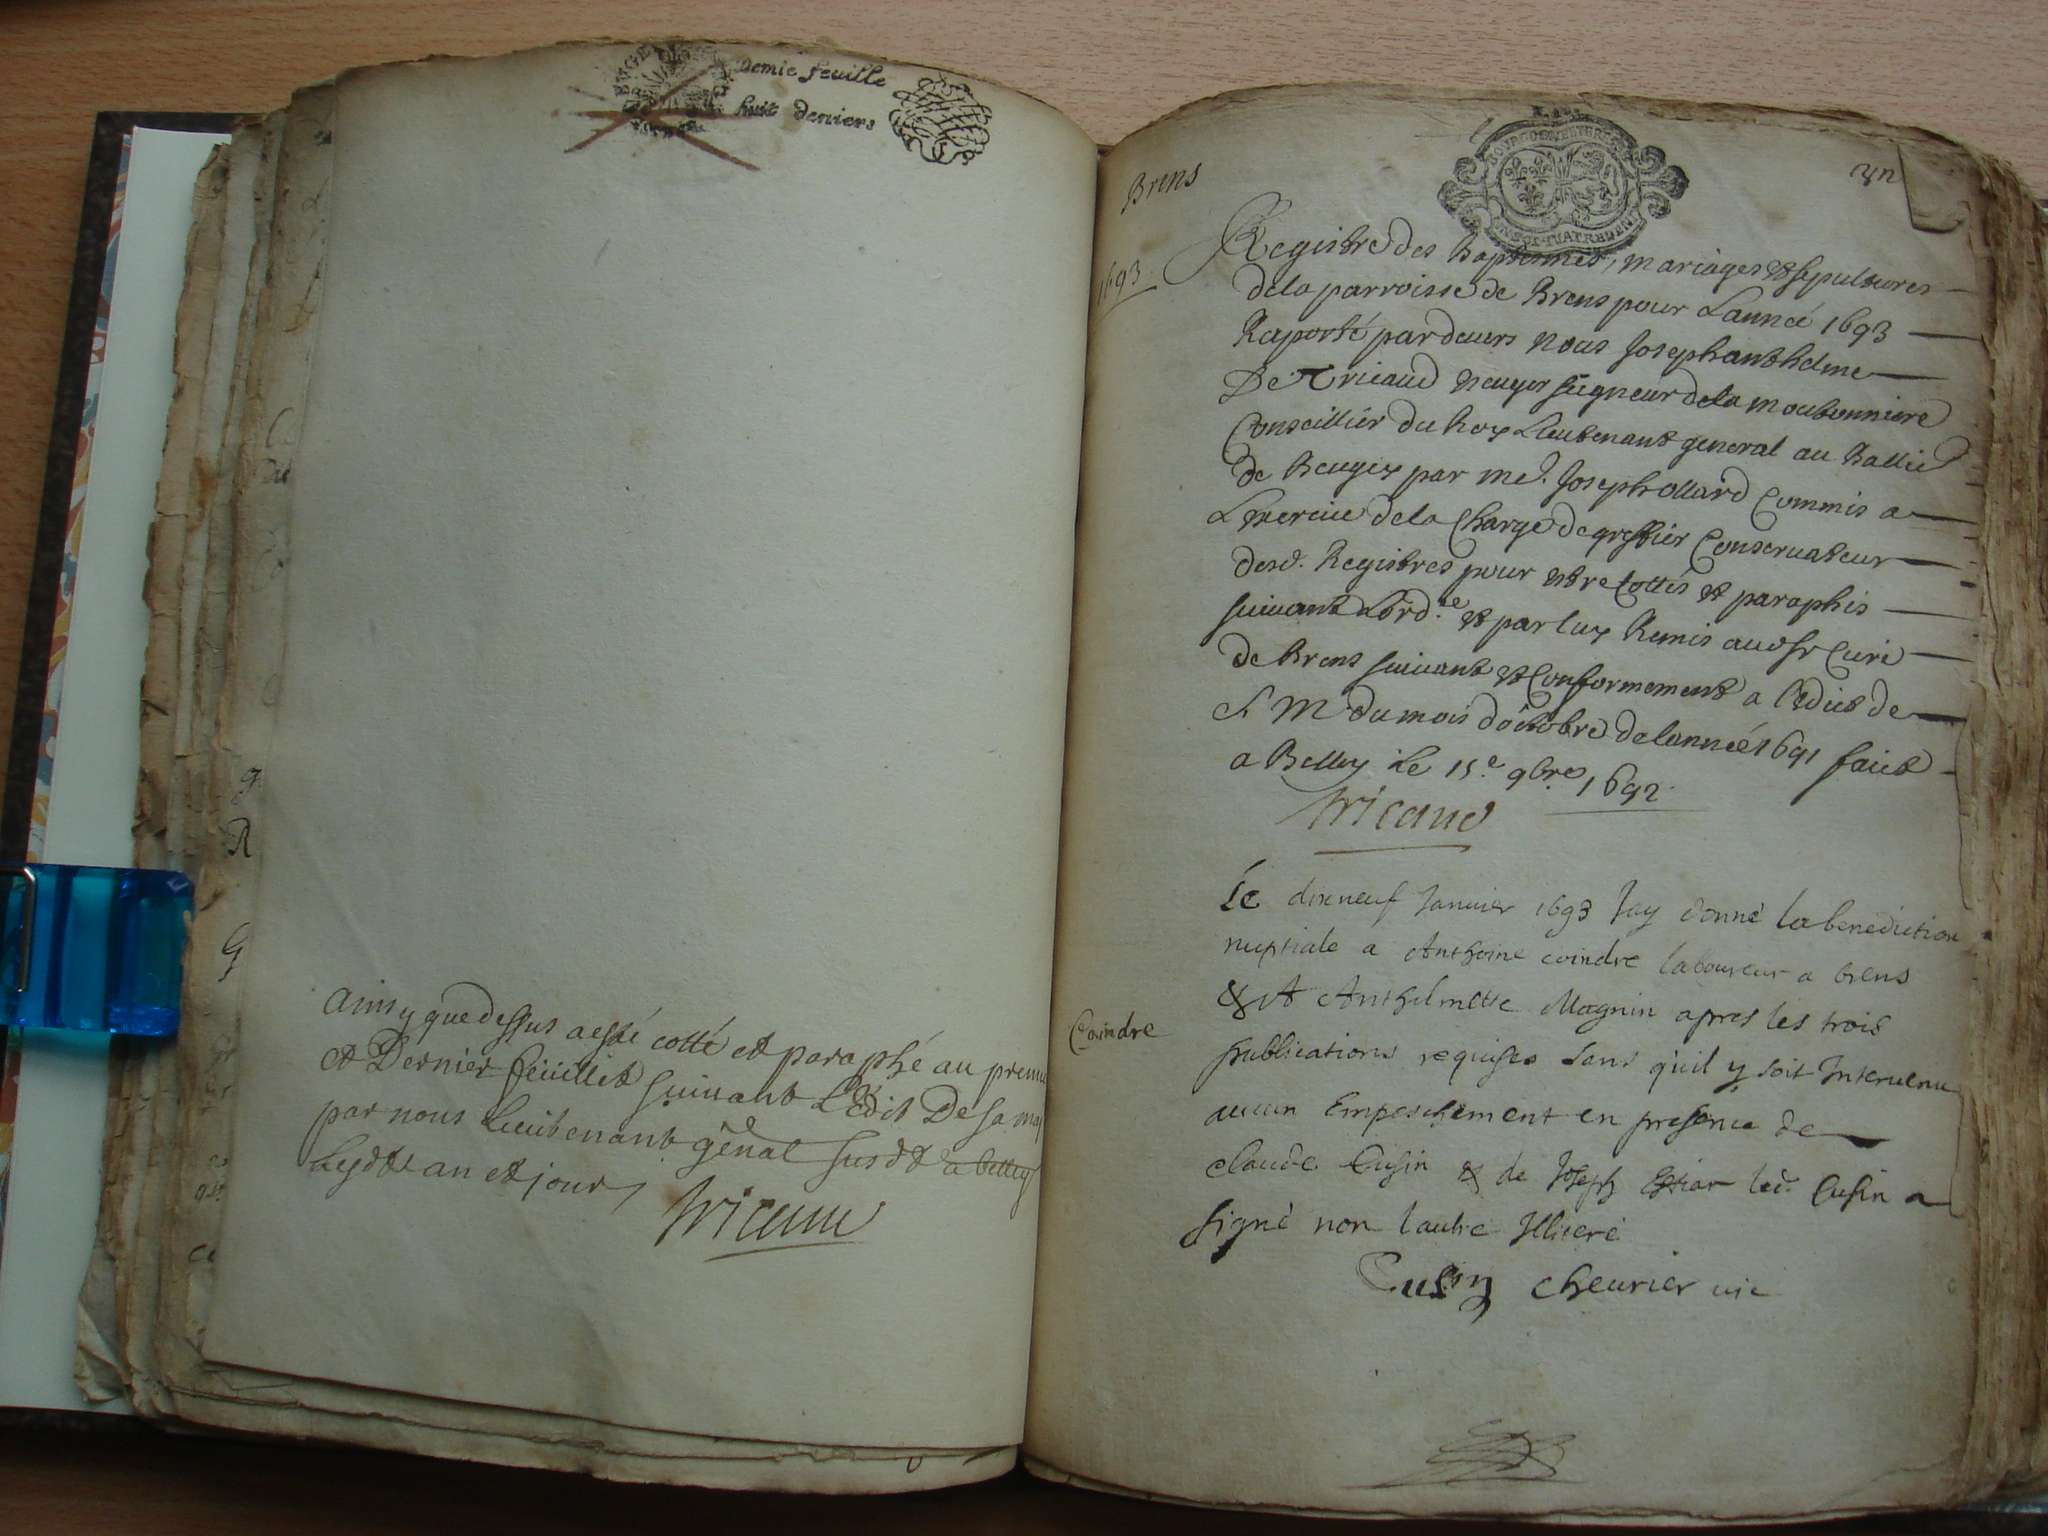 Demie feuille
huit deniers
ainsy que dessus a esté cotté et paraphé au premie
et Dernier feüillet suivant L'Edit De sa maj
par nous Lieutenant gñal susdt a belley
lesdt an et jour
Tricaud
Brens
1693
Registre des Baptesmes, mariages et sepultures
de la parroisse de Brens pour Lanneé 1693
Raporté pardevers nous Joseph anthelme
De Tricaud escuyer seigneur de la moubonniere
Conseillier du Roy Lieutenant general au Ballie
de Beugey par me. Joseph ollard Commis a
Lexercice de la Charge de greffier Conservateur
desd. Registres pour estre Cottés et paraphés
suivant Lord.ce et par luy Remis audt sr Curé
de Brens suivant et Conformement a l'edict de
S. M. du mois d'octobre de lanneé 1691 faict
a Belley Le 15.e 9bre 1692.
Tricaud
Le dixneuf Janvier 1693 Jay donné la benediction
nuptiale a Anthoine coindre laboureur a brens
& A Anthelmette Magnin apres les trois
Coindre
publications requises sans quil y soit Intervenu
aucun Empeschement en presence de
claude Cusin & de Joseph led. Cusin a
signé non l'autre Illiteré
Cusin chevrier vic